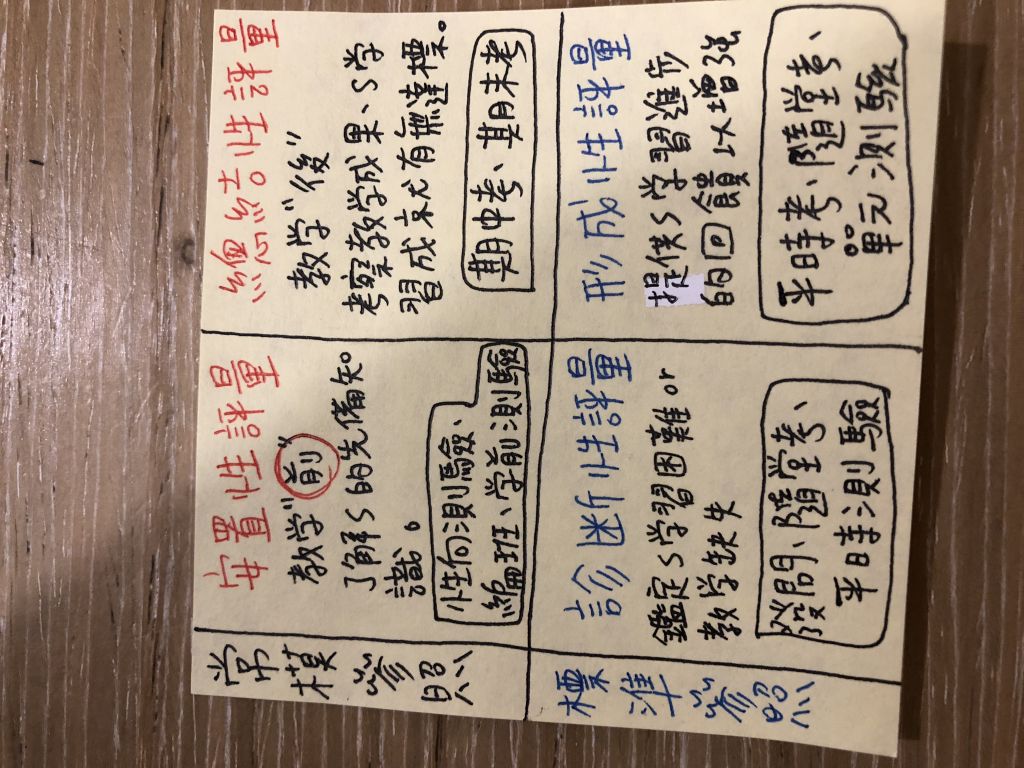 常模參照
安置性評量
教学"前"
了解S的先備知
識。
性向測驗、
編班、学前測驗
總結性評量
教学"後"
考察教学成果、S学
習成就有無達標。
期中考、期末考
標準參照
診断性評量
鑑定S学習困難or
教学缺失
發問、隨堂考、
平時測驗
形成性評量
提供S学習進步
的回饋以增強
平時考、隨堂考、
單元測驗